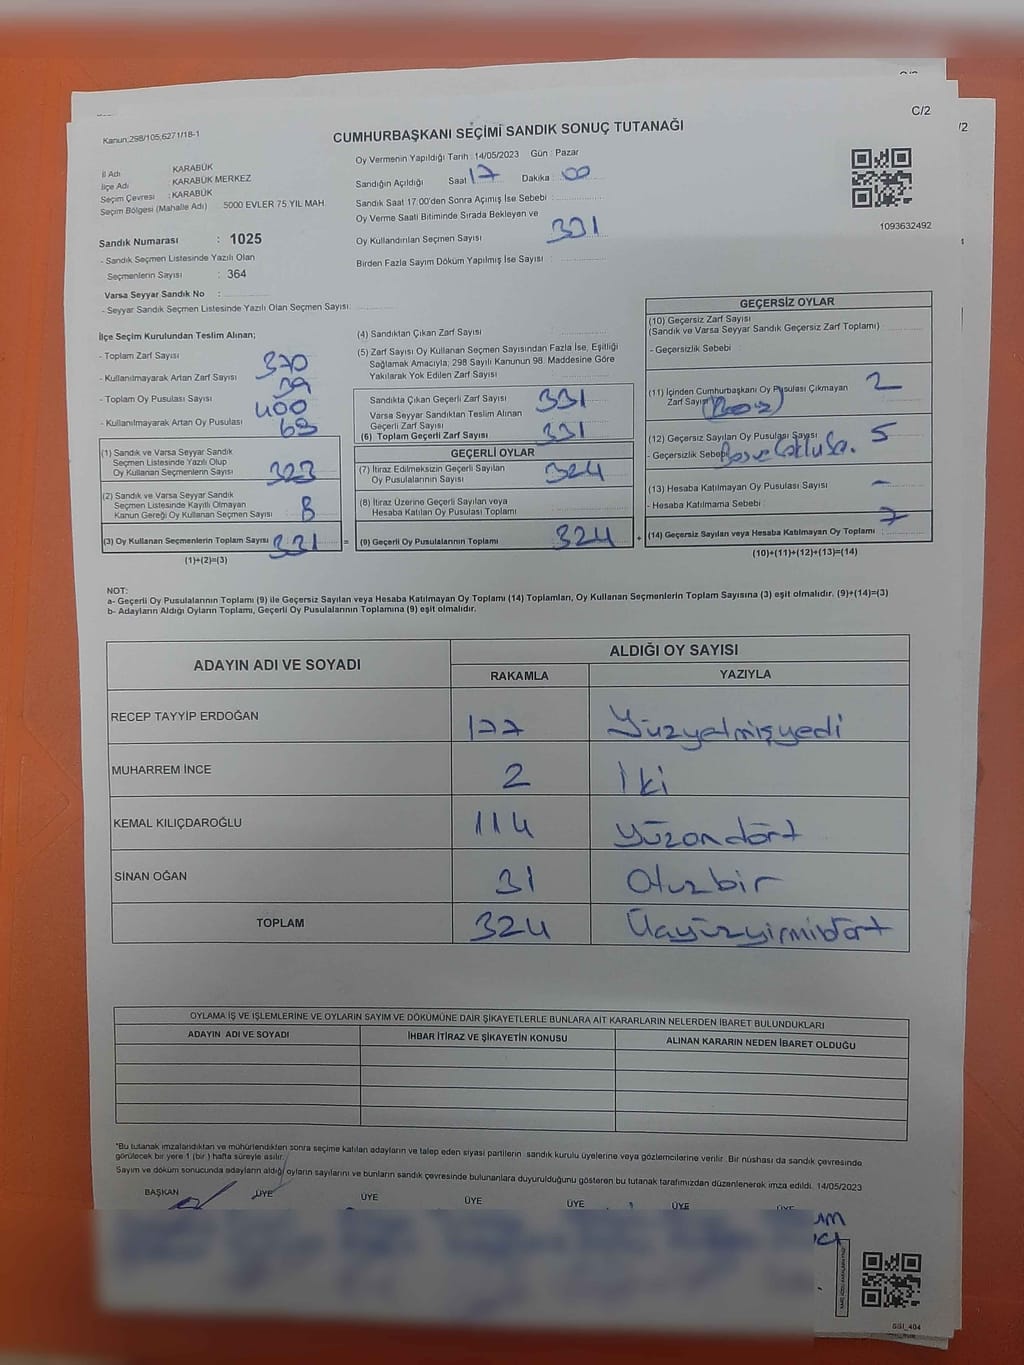 C/2
Kanun;298/105,6271/18-1
CUMHURBAŞKANI SEÇİMİ SANDIK SONUÇ TUTANAĞI
İl Adı KARABÜK
İlçe Adı : KARABÜK MERKEZ
Seçim Çevresi : KARABÜK
Seçim Bölgesi (Mahalle Adı) : 5000 EVLER 75.YIL MAH.
Sandık Numarası : 1025
- Sandık Seçmen Listesinde Yazılı Olan
Seçmenlerin Sayısı : 364
Varsa Seyyar Sandık No :
- Seyyar Sandık Seçmen Listesinde Yazılı Olan Seçmen Sayısı:
Oy Vermenin Yapıldığı Tarih : 14/05/2023 Gün : Pazar
Sandığın Açıldığı Saat 17 Dakika : 00
Sandık Saat 17.00'den Sonra Açımış İse Sebebi :
Oy Verme Saati Bitiminde Sırada Bekleyen ve
Oy Kullandırılan Seçmen Sayısı 331
Birden Fazla Sayım Döküm Yapılmış İse Sayısı :
1093632492
İlçe Seçim Kurulundan Teslim Alınan;
- Toplam Zarf Sayısı 370
- Kullanılmayarak Artan Zarf Sayısı 39
- Toplam Oy Pusulası Sayısı 400
- Kullanılmayarak Artan Oy Pusulası 69
(1) Sandık ve Varsa Seyyar Sandık
Seçmen Listesinde Yazılı Olup
Oy Kullanan Seçmenlerin Sayısı 323
(2) Sandık ve Varsa Seyyar Sandık
Seçmen Listesinde Kayıtlı Olmayan
Kanun Gereği Oy Kullanan Seçmen Sayısı : 8
(3) Oy Kullanan Seçmenlerin Toplam Sayısı : 331
(1)+(2)=(3)
(4) Sandıktan Çıkan Zarf Sayısı
(5) Zarf Sayısı Oy Kullanan Seçmen Sayısından Fazla İse, Eşitliği
Sağlamak Amacıyla, 298 Sayılı Kanunun 98. Maddesine Göre
Yakılarak Yok Edilen Zarf Sayısı
Sandıkta Çıkan Geçerli Zarf Sayısı 331
Varsa Seyyar Sandıktan Teslim Alınan
Geçerli Zarf Sayısı
(6) Toplam Geçerli Zarf Sayısı : 331
GEÇERLİ OYLAR
(7) İtiraz Edilmeksizin Geçerli Sayılan
Oy Pusulalarının Sayısı 324
(8) İtiraz Üzerine Geçerli Sayılan veya
Hesaba Katılan Oy Pusulası Toplamı
= (9) Geçerli Oy Pusulalarının Toplamı 324
GEÇERSİZ OYLAR
(10) Geçersiz Zarf Sayısı
(Sandık ve Varsa Seyyar Sandık Geçersiz Zarf Toplamı)
- Geçersizlik Sebebi :
(11) İçinden Cumhurbaşkanı Oy Pusulası Çıkmayan 2
Zarf Sayısı
(12) Geçersiz Sayılan Oy Pusulası Sayısı 5
- Geçersizlik Sebebi
(13) Hesaba Katılmayan Oy Pusulası Sayısı -
- Hesaba Katılmama Sebebi :
+ (14) Geçersiz Sayılan veya Hesaba Katılmayan Oy Toplamı : 7
(10)+(11)+(12)+(13)=(14)
NOT:
a- Geçerli Oy Pusulalarının Toplamı (9) ile Geçersiz Sayılan veya Hesaba Katılmayan Oy Toplamı (14) Toplamları, Oy Kullanan Seçmenlerin Toplam Sayısına (3) eşit olmalıdır. (9)+(14)=(3)
b- Adayların Aldığı Oyların Toplamı, Geçerli Oy Pusulalarının Toplamına (9) eşit olmalıdır.
ADAYIN ADI VE SOYADI
ALDIĞI OY SAYISI
RAKAMLA YAZIYLA
RECEP TAYYİP ERDOĞAN 177 Yüzyetmişyedi
MUHARREM İNCE 2 İki
KEMAL KILIÇDAROĞLU 114 Yüzondört
SİNAN OĞAN 31 Otuzbir
TOPLAM 324 Üçyüzyirmidört
OYLAMA İŞ VE İŞLEMLERİNE VE OYLARIN SAYIM VE DÖKÜMÜNE DAİR ŞİKAYETLERLE BUNLARA AİT KARARLARIN NELERDEN İBARET BULUNDUKLARI
ADAYIN ADI VE SOYADI İHBAR İTİRAZ VE ŞİKAYETİN KONUSU ALINAN KARARIN NEDEN İBARET OLDUĞU
*Bu tutanak imzalandıktan ve mühürlendikten sonra seçime katılan adayların ve talep eden siyasi partilerin sandık kurulu üyelerine veya gözlemcilerine verilir. Bir nüshası da sandık çevresinde
görülecek bir yere 1 (bir) hafta süreyle asılır.
Sayım ve döküm sonucunda adayların aldığı oyların sayılarını ve bunların sandık çevresinde bulunanlara duyurulduğunu gösteren bu tutanak tarafımızdan düzenlenerek imza edildi. 14/05/2023
BAŞKAN ÜYE ÜYE ÜYE ÜYE ÜYE ÜYE